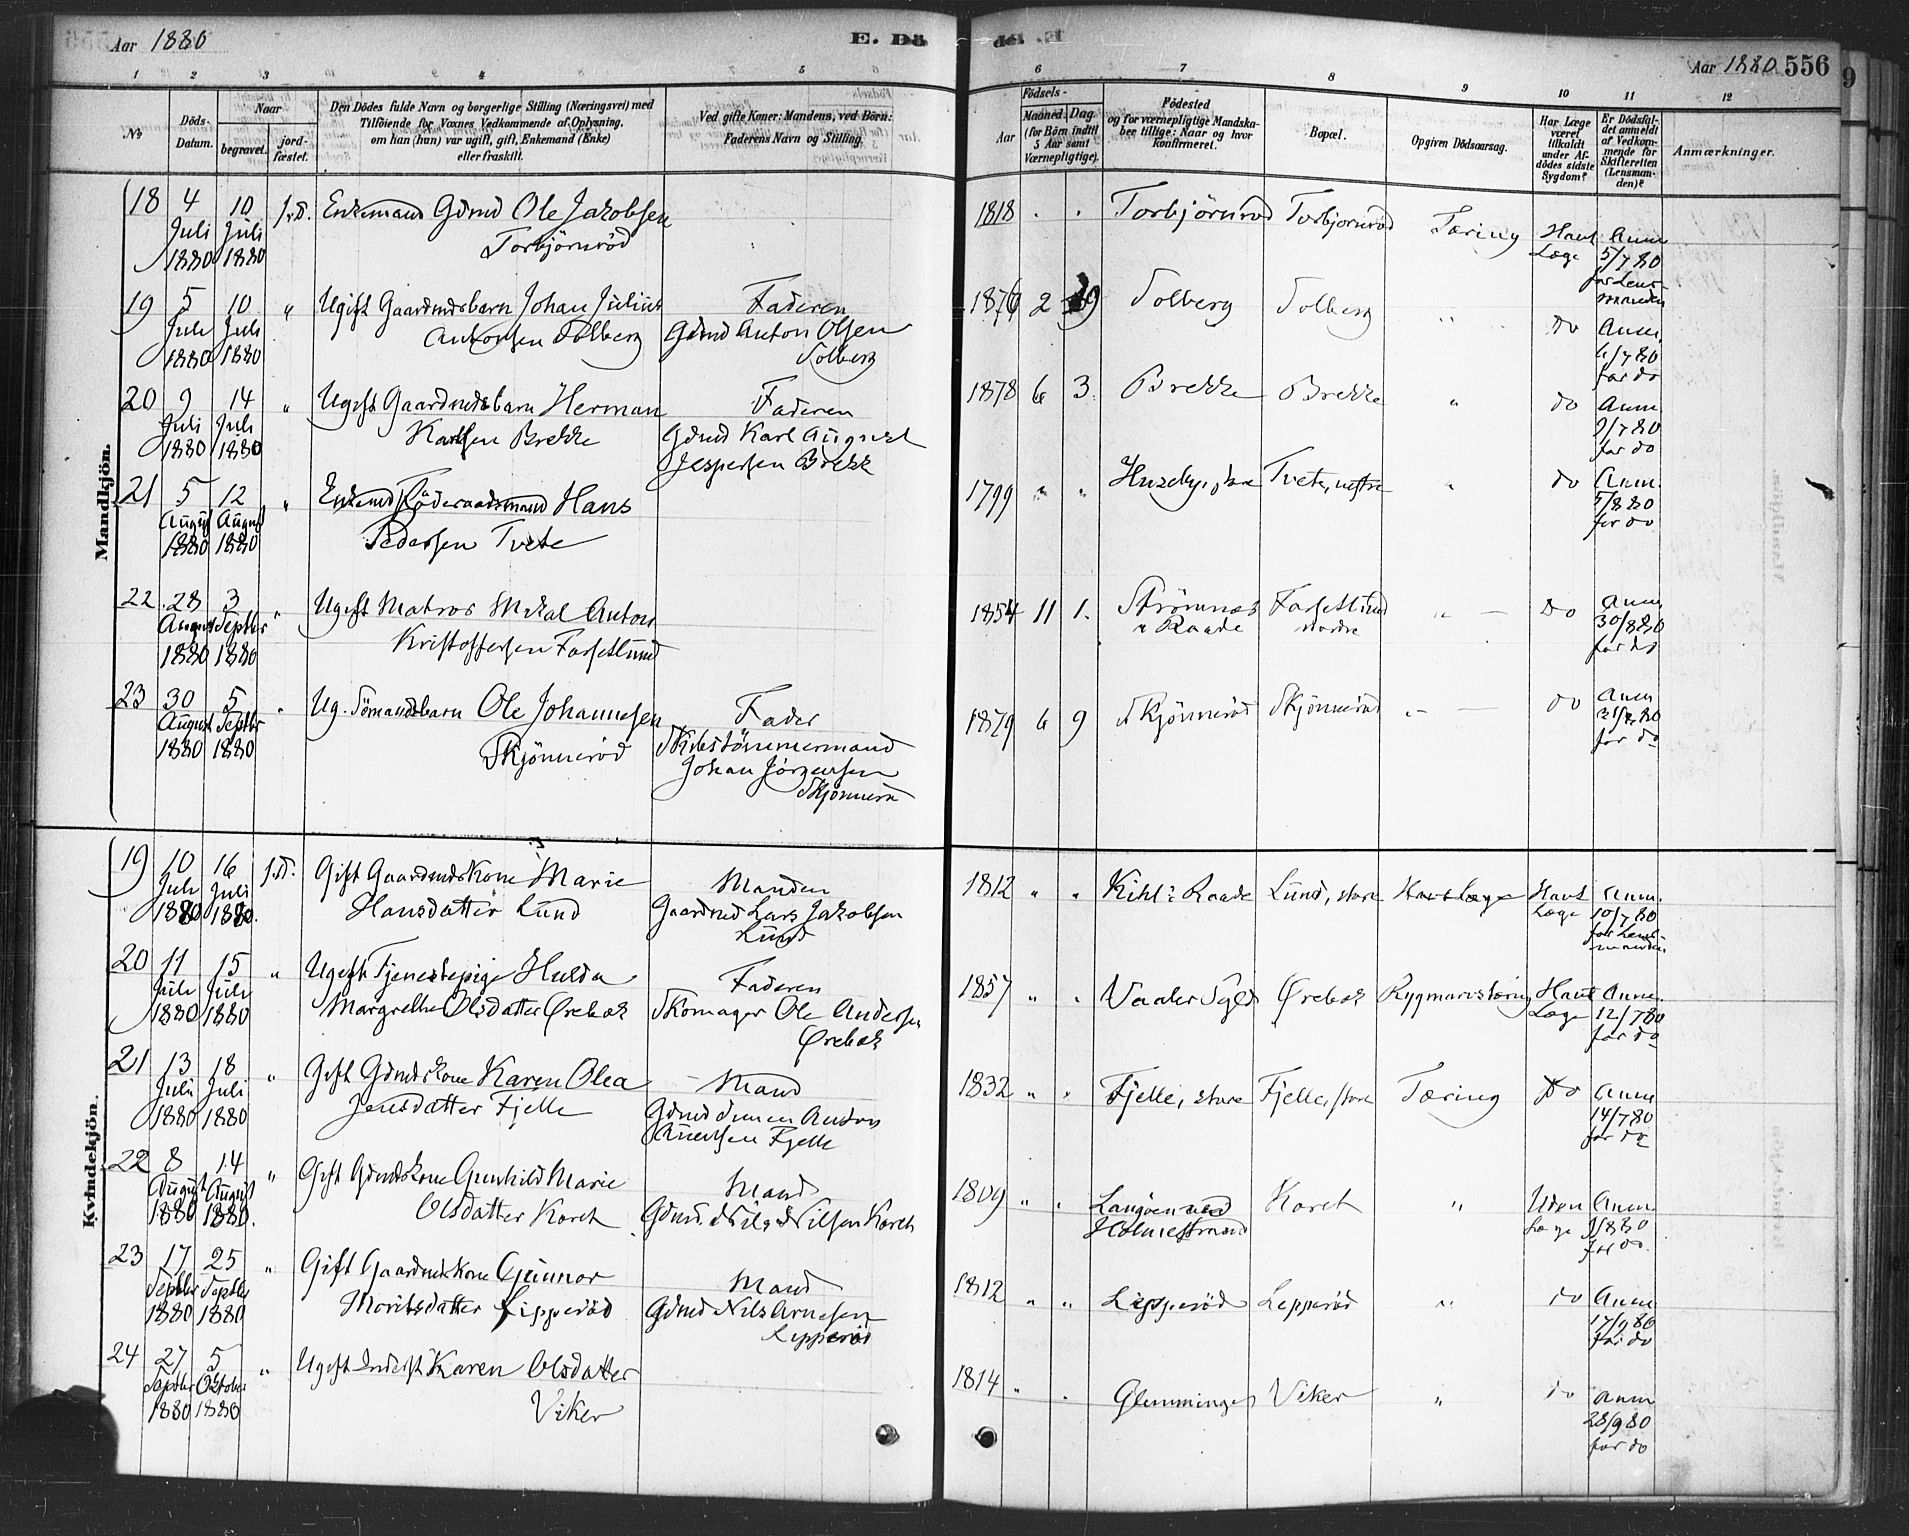 Aar 1880
E. Dö
Aar 1880 556
1 2 3 4 5 6 7 8 9 10 11 12
No
Döds-Datum.
Naar
begravet.
jord-fæstet.
Den Dödes fulde Navn og borgerlige Stilling (Næringsvei) med
Tilföiende for Voxnes Vedkommende af Oplysning,
om han (hun) var ugift, gift, Enkemand (Enke)
eller fraskilt.
Ved gifte Koner: Mandens, ved Börn:
Faderens Navn og Stilling.
Födsels-
Aar
Maaned. Dag
(for Börn indtil
5 Aar samt
Værnepligtige).
Födested
og for værnepligtige Mandska-
ber tillige: Naar og hvor
konfirmeret.
Bopæl.
Opgiven Dödsaarsag.
Har Læge
været
tilkaldt
under Af-
dödes sidste
Sygdom?
Er Dödsfal-
det anmeldt
af Vedkom-
mende for
Skifteretten
(Lensman-
den)?
Anmærkninger.
Mandkjön.
18 4 10 Enkemand Gdmd Ole Jakobsen 1818 Torbjörnröd Torbjornröd Tæring Havt Anm
Juli Juli Torbjörnröd Læge 5/7 80
1880 1880 for Lens-
manden
19 5 10 " Ugift Gaardmdsbarn Johan Julius Faderen 1876 2 9 Solberg Solberg " do Anm.
Juli Juli Antonsen Solberg Gdmd Anton Olsen /7 80
1880 1880 Solberg for do
20 9 14 " Ugift Gaardmdsbarn Herman Faderen 1878 6 3. Brekke Brekke " do Anm
Juli Juli Karlsen Brekke Gdmd Karl August 9/7 80
1880 1880 Jespersen Brekk for do
21 5 12 " Enkemd Föderaadsmand Hans 1799 " " Huseby, Tvete, nestre " do Anm.
August August Pedersen Tvete 5/8 80
1880 1880 for do
22 28 3 " Ugift Matros Mikal Anton 1854 11 1. Strömnes Farsetlund " do Anm
August Septbr Kristoffersen Farsetlund i Raade nordre 30/8 80
1880 1880 for do
23 30 5 " Ug. Sömandsbarn Ole Johannesen Fader 1879 6 9 Skjönneröd Skjönneröd " do Anm
August Septbr Skjönneröd Skibstömmermand 31/8 80
1880 1880 Johan Jörgensen for do
Skjönnerö
Kvindekjön.
19 10 16 Gift Gaardmdskone Marie Manden 1812 " " Kihl i Raade Lund, store Havt Læge Havt Anm.
Juli Juli Hansdatter Lund Gaardmd Lars Jakobsen Læge 10/7 80
1880 1880. Lund for Lens-
manden
20 11 15 " Ugift Tjenestepige Hulda Faderen 1857 " " Vaaler Sgld Ørebæk Rygmarvstæring Havt Anm.
Juli Juli Margrethe Olsdatter Ørebæk Skomager Ole Andersen Læge 12/7 80
1880 1880 Ørebæk for do
21 13 18 " Gift Gdmdskone Karen Olea Mand 1832 " " Fjelle, store Fjelle, store Tæring Do Anm
Juli Juli Jensdatter Fjelle Gdmd Anton 14/7 80
1880 1880 Fjelle for do
22 8 14 " Gift Gdmdskone Gunhild Marie Mand 1809 " " Langöen ved Horet " Uden Anm
August August Olsdatter Horet Gdmd. Nils Nilsen Horet Holmestrand Læge 9/8 80
1880 1880. for do.
23 17 25 " Gift Gaardmdskone Gunnor Mand 1812 " " Lipperöd Lepperöd " do Anm
Septbr Septbr Moritsdatter Lipperöd Gdmd Nils Arnesen 17/9 80
1880 1880 Lipperöd for do
24 27 5 " Ugift Inderst Karen Olsdatter 1814 " " Glemminge Viker " do Anm
Septbr Oktober Viker 28/9 80
1880 1880 for do